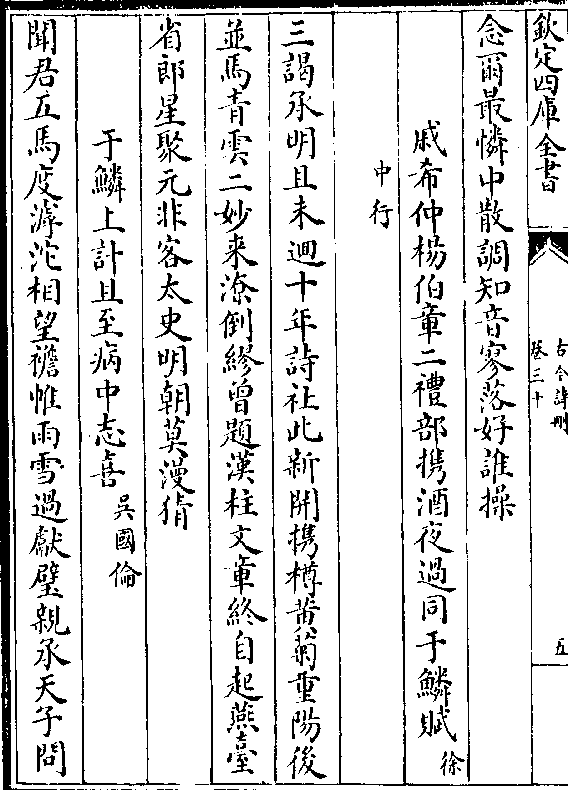 欽定四庫全書
古今詩刪
卷三十
五
念爾最憐中散調知音寥落好誰操
戚希仲楊伯章二禮部携酒夜過同于鱗賦徐
中行
三謁承明且未迴十年詩社此新開携樽黄菊重陽後
並馬青雲二妙来潦倒繆曾題漢柱文章終自起燕臺
省郎星聚元非客太史明朝莫漫猜
于鱗上計且至病中志喜吳國倫
聞君五馬度滹沱相望襜帷雨雪過獻璧親承天子問